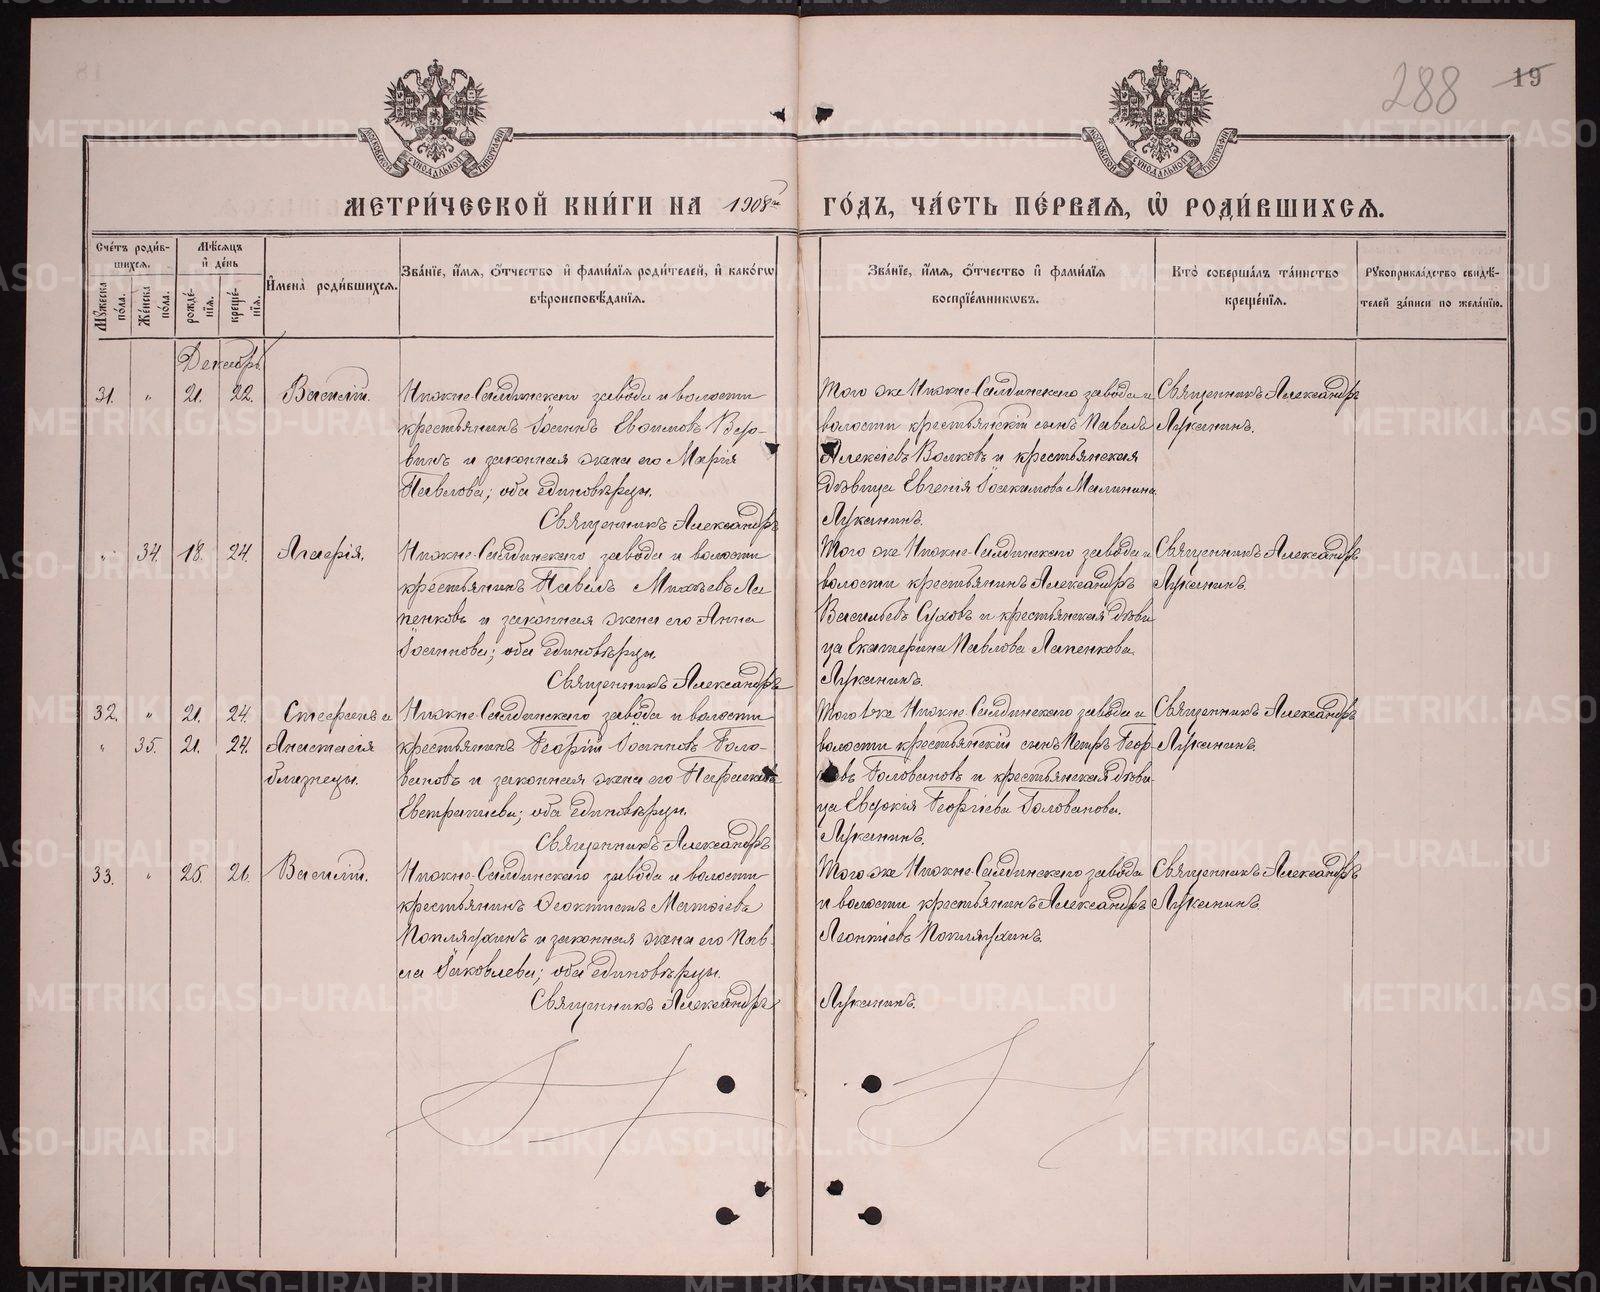 288 19
МЕТРИ́ЧЕСКОЙ КНИ́ГИ НА 1908й ГО́ДЪ, ЧА́СТЬ ПЕ́РВАЯ, Ѡ РОДИ́ВШИХСЯ.
Сче́тъ роди́вшихся.
Му́жеска по́ла.
Же́нска по́ла.
Мѣ́сяцъ и де́нь
рожде́нія.
креще́нія.
Имена̀ роди́вшихся.
Зва́ніе, и́мя, о́тчество и фами́лія роди́телей, и како́гѡ
вѣроисповѣ́данія.
Зва́ніе, и́мя, о́тчество и фами́лія
воспріе́мникѡвъ.
Кто̀ соверша́лъ та́инство
креще́нія.
Рукоприкла́дство свидѣ́-
телей за́писи по жела́нію.
Декабрь
31. " 21. 22. Василій.
Нижне-Салдинскаго завода и волости
крестьянинъ Іоаннъ Евѳимовъ Веро-
винъ и законная жена его Марія
Павлова; оба единовѣрцы.
Священникъ Александръ Луканинъ.
Того же Нижне-Салдинскаго завода и
волости крестьянскій сынъ Павелъ
Алексіевъ Волковъ и крестьянская
дѣвица Евгенія Іоакимова Малинина.
Священникъ Александръ
Луканинъ.
" 34. 18. 24. Агаѳія.
Нижне-Салдинскаго завода и волости
крестьянинъ Павелъ Михѣевъ Ла
пенковъ и законная жена его Анна
Іоаннова; оба единовѣрцы.
Священникъ Александръ Луканинъ.
Того же Нижне-Салдинскаго завода и
волости крестьянинъ Александръ
Васильевъ Суховъ и крестьянская дѣви
ца Екатерина Павлова Лапенкова.
Священникъ Александръ
Луканинъ.
32. " 21. 24. Стефанъ и
" 35. 21. 24. Анастасія
близнецы.
Нижне-Салдинскаго завода и волости
крестьянинъ Георгій Іоанновъ Голо-
вановъ и законная жена его Параскева
Евстратіева; оба единовѣрцы.
Священникъ Александръ Луканинъ.
Того же Нижне-Салдинскаго завода и
волости крестьянскій сынъ Петръ Геор-
гіевъ Головановъ и крестьянская дѣви-
ца Евдокія Георгіева Голованова.
Священникъ Александръ
Луканинъ.
33. " 25. 26. Василій.
Нижне-Салдинскаго завода и волости
крестьянинъ Ѳеоктистъ Матѳіевъ
Поплаухинъ и законная жена его Пав-
ла Іаковлева; оба единовѣрцы.
Священникъ Александръ Луканинъ.
Того же Нижне-Салдинскаго завода
и волости крестьянинъ Александръ
Леонтіевъ Поплаухинъ.
Священникъ Александръ
Луканинъ.
METRIKI.GASO-URAL.RU